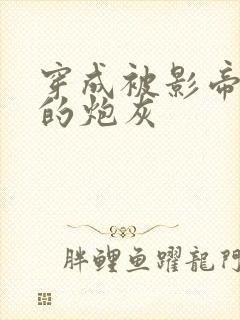 穿成被影帝
的炮灰
胖鲤鱼躍龍門